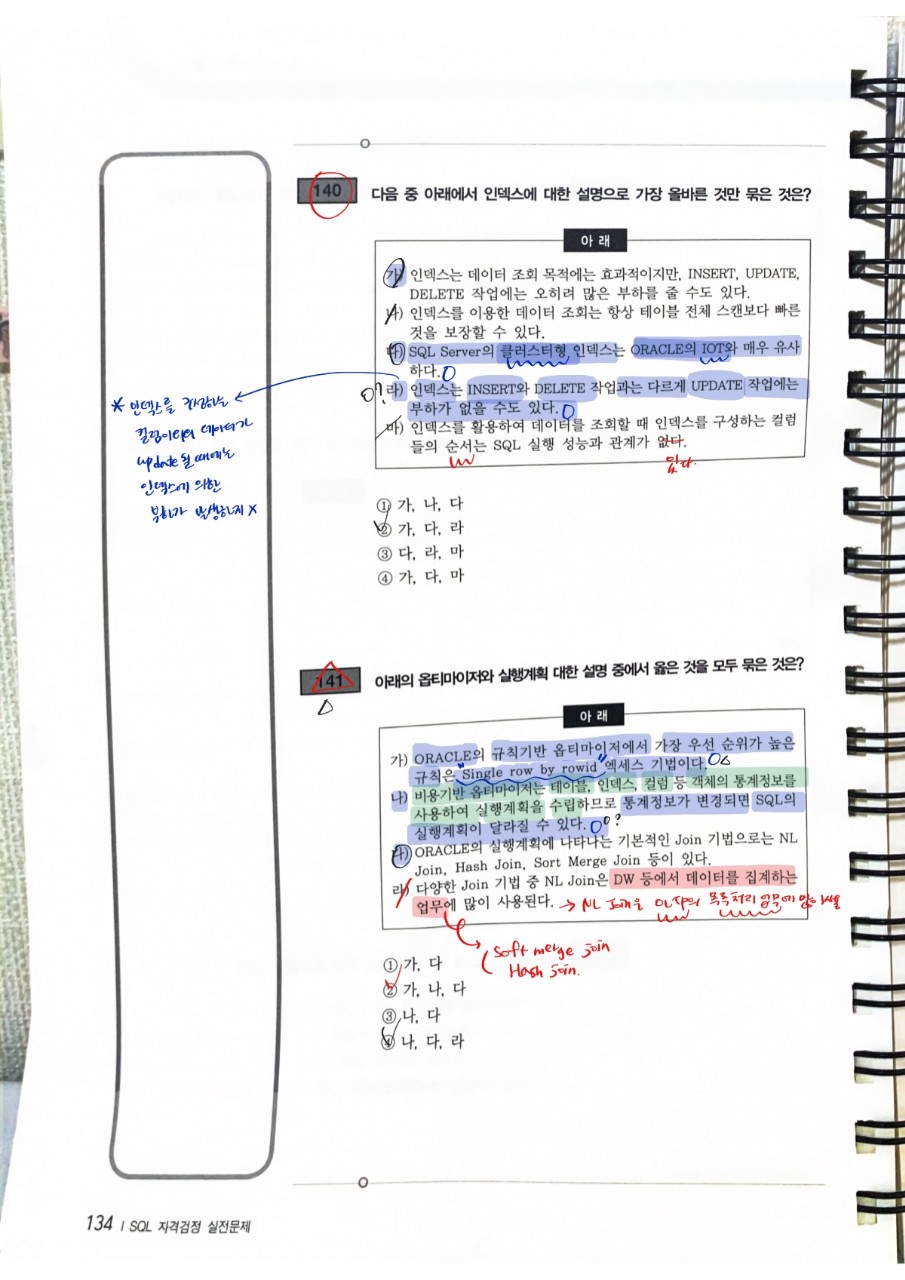 140 다음 중 아래에서 인덱스에 대한 설명으로 가장 올바른 것만 묶은 것은?
아 래
가) 인덱스는 데이터 조회 목적에는 효과적이지만, INSERT, UPDATE,
DELETE 작업에는 오히려 많은 부하를 줄 수도 있다.
나) 인덱스를 이용한 데이터 조회는 항상 테이블 전체 스캔보다 빠른
것을 보장할 수 있다.
다) SQL Server의 클러스터형 인덱스는 ORACLE의 IOT와 매우 유사
하다. O
O? 라) 인덱스는 INSERT와 DELETE 작업과는 다르게 UPDATE 작업에는
부하가 없을 수도 있다. O
마) 인덱스를 활용하여 데이터를 조회할 때 인덱스를 구성하는 컬럼
들의 순서는 SQL 실행 성능과 관계가 없다.
있다.
* 인덱스를 구성하는
컬럼이외의 데이터가
update될 때에는
인덱스에 의한
부하가 발생하지 X
① 가, 나, 다
② 가, 다, 라
③ 다, 라, 마
④ 가, 다, 마
141 아래의 옵티마이저와 실행계획 대한 설명 중에서 옳은 것을 모두 묶은 것은?
아 래
가) ORACLE의 규칙기반 옵티마이저에서 가장 우선 순위가 높은
규칙은 "Single row by rowid" 엑세스 기법이다. O
나) 비용기반 옵티마이저는 테이블, 인덱스, 컬럼 등 객체의 통계정보를
사용하여 실행계획을 수립하므로 통계정보가 변경되면 SQL의
실행계획이 달라질 수 있다. O ?
다) ORACLE의 실행계획에 나타나는 기본적인 Join 기법으로는 NL
Join, Hash Join, Sort Merge Join 등이 있다.
라) 다양한 Join 기법 중 NL Join은 DW 등에서 데이터를 집계하는
업무에 많이 사용된다. → NL Join은 OLTP의 목록처리 업무에 많이 쓰임
Soft merge join
Hash join.
① 가, 다
② 가, 나, 다
③ 나, 다
④ 나, 다, 라
134 | SQL 자격검정 실전문제